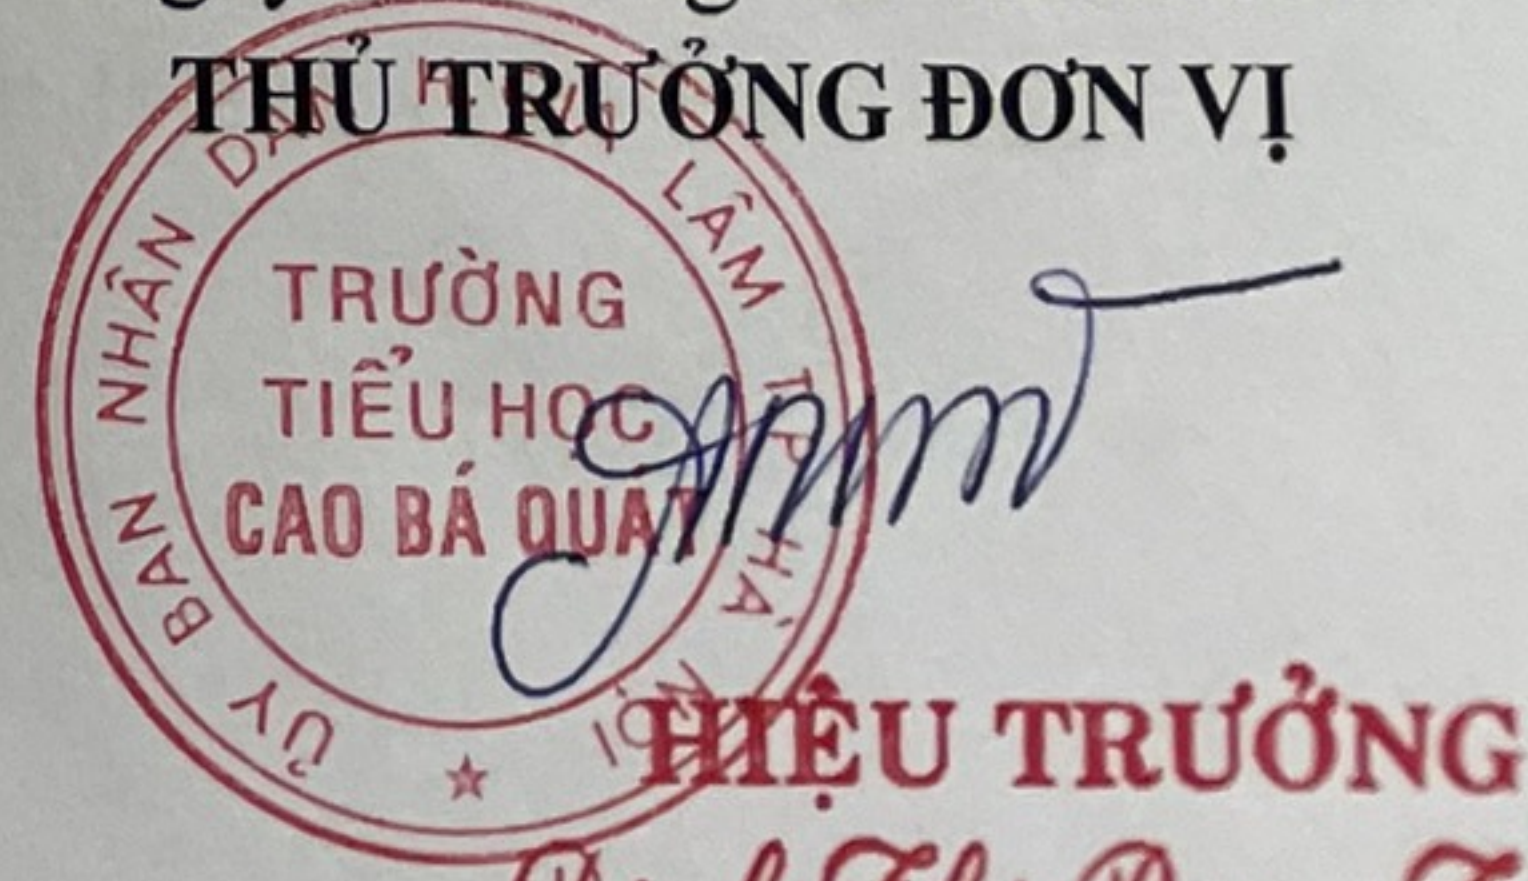 THỦ TRƯỞNG ĐƠN VỊ
ỦY BAN NHÂN DÂN H. GIA LÂM TP HÀ NỘI
TRƯỜNG
TIỂU HỌC
CAO BÁ QUÁT
HIỆU TRƯỞNG